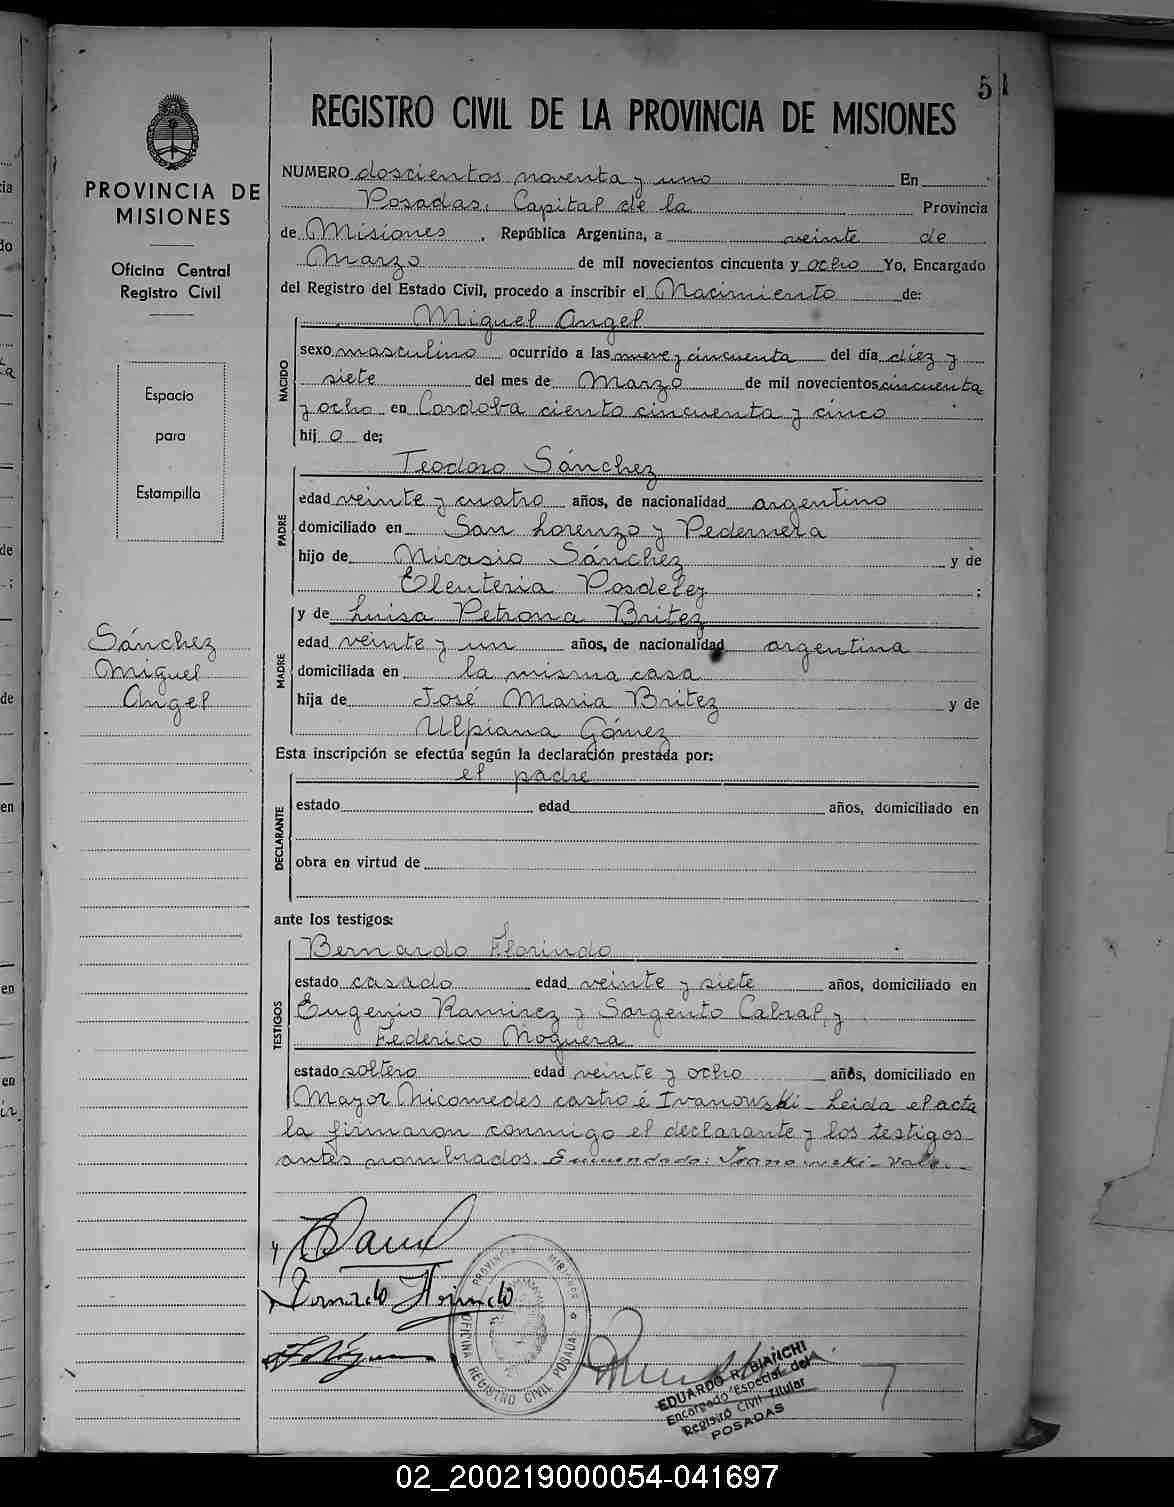 51
REGISTRO CIVIL DE LA PROVINCIA DE MISIONES
PROVINCIA DE
MISIONES
Oficina Central
Registro Civil
Espacio
para
Estampilla
Sánchez
Miguel
Angel
NUMERO doscientos noventa y uno En
Posadas, Capital de la Provincia
de Misiones, República Argentina, a veinte de
Marzo de mil novecientos cincuenta y ocho Yo, Encargado
del Registro del Estado Civil, procedo a inscribir el Nacimiento de:
NACIDO
Miguel Angel
sexo masculino ocurrido a las nueve y cincuenta del día diez y
siete del mes de Marzo de mil novecientos cincuenta
y ocho en Cordoba ciento cincuenta y cinco
hij o de;
PADRE
Teodoro Sánchez
edad veinte y cuatro años, de nacionalidad argentino
domiciliado en San Lorenzo y Pedernera
hijo de Nicasio Sánchez y de
Eleuteria Posdeley ;
MADRE
y de Luisa Petrona Britez
edad veinte y un años, de nacionalidad argentina
domiciliada en la misma casa
hija de José Maria Britez y de
Ulpiana Gómez
Esta inscripción se efectúa según la declaración prestada por:
el padre
DECLARANTE
estado edad años, domiciliado en
obra en virtud de
ante los testigos:
TESTIGOS
Bernardo Florindo
estado casado edad veinte y siete años, domiciliado en
Eugenio Ramirez y Sargento Cabral, y
Federico Noguera
estado soltero edad veinte y ocho años, domiciliado en
Mayor Nicomedes castro é Ivanowski - Leida el acta
la firmaron conmigo el declarante y los testigos
antes nombrados. Enmendado: Ivanowski - vale.
Bernardo Florindo
PROVINCIA MISIONES
OFICINA REGISTRO CIVIL POSADAS
EDUARDO R. BIANCHI
Encargado Especial del
Registro Civil Titular
POSADAS
02_200219000054-041697